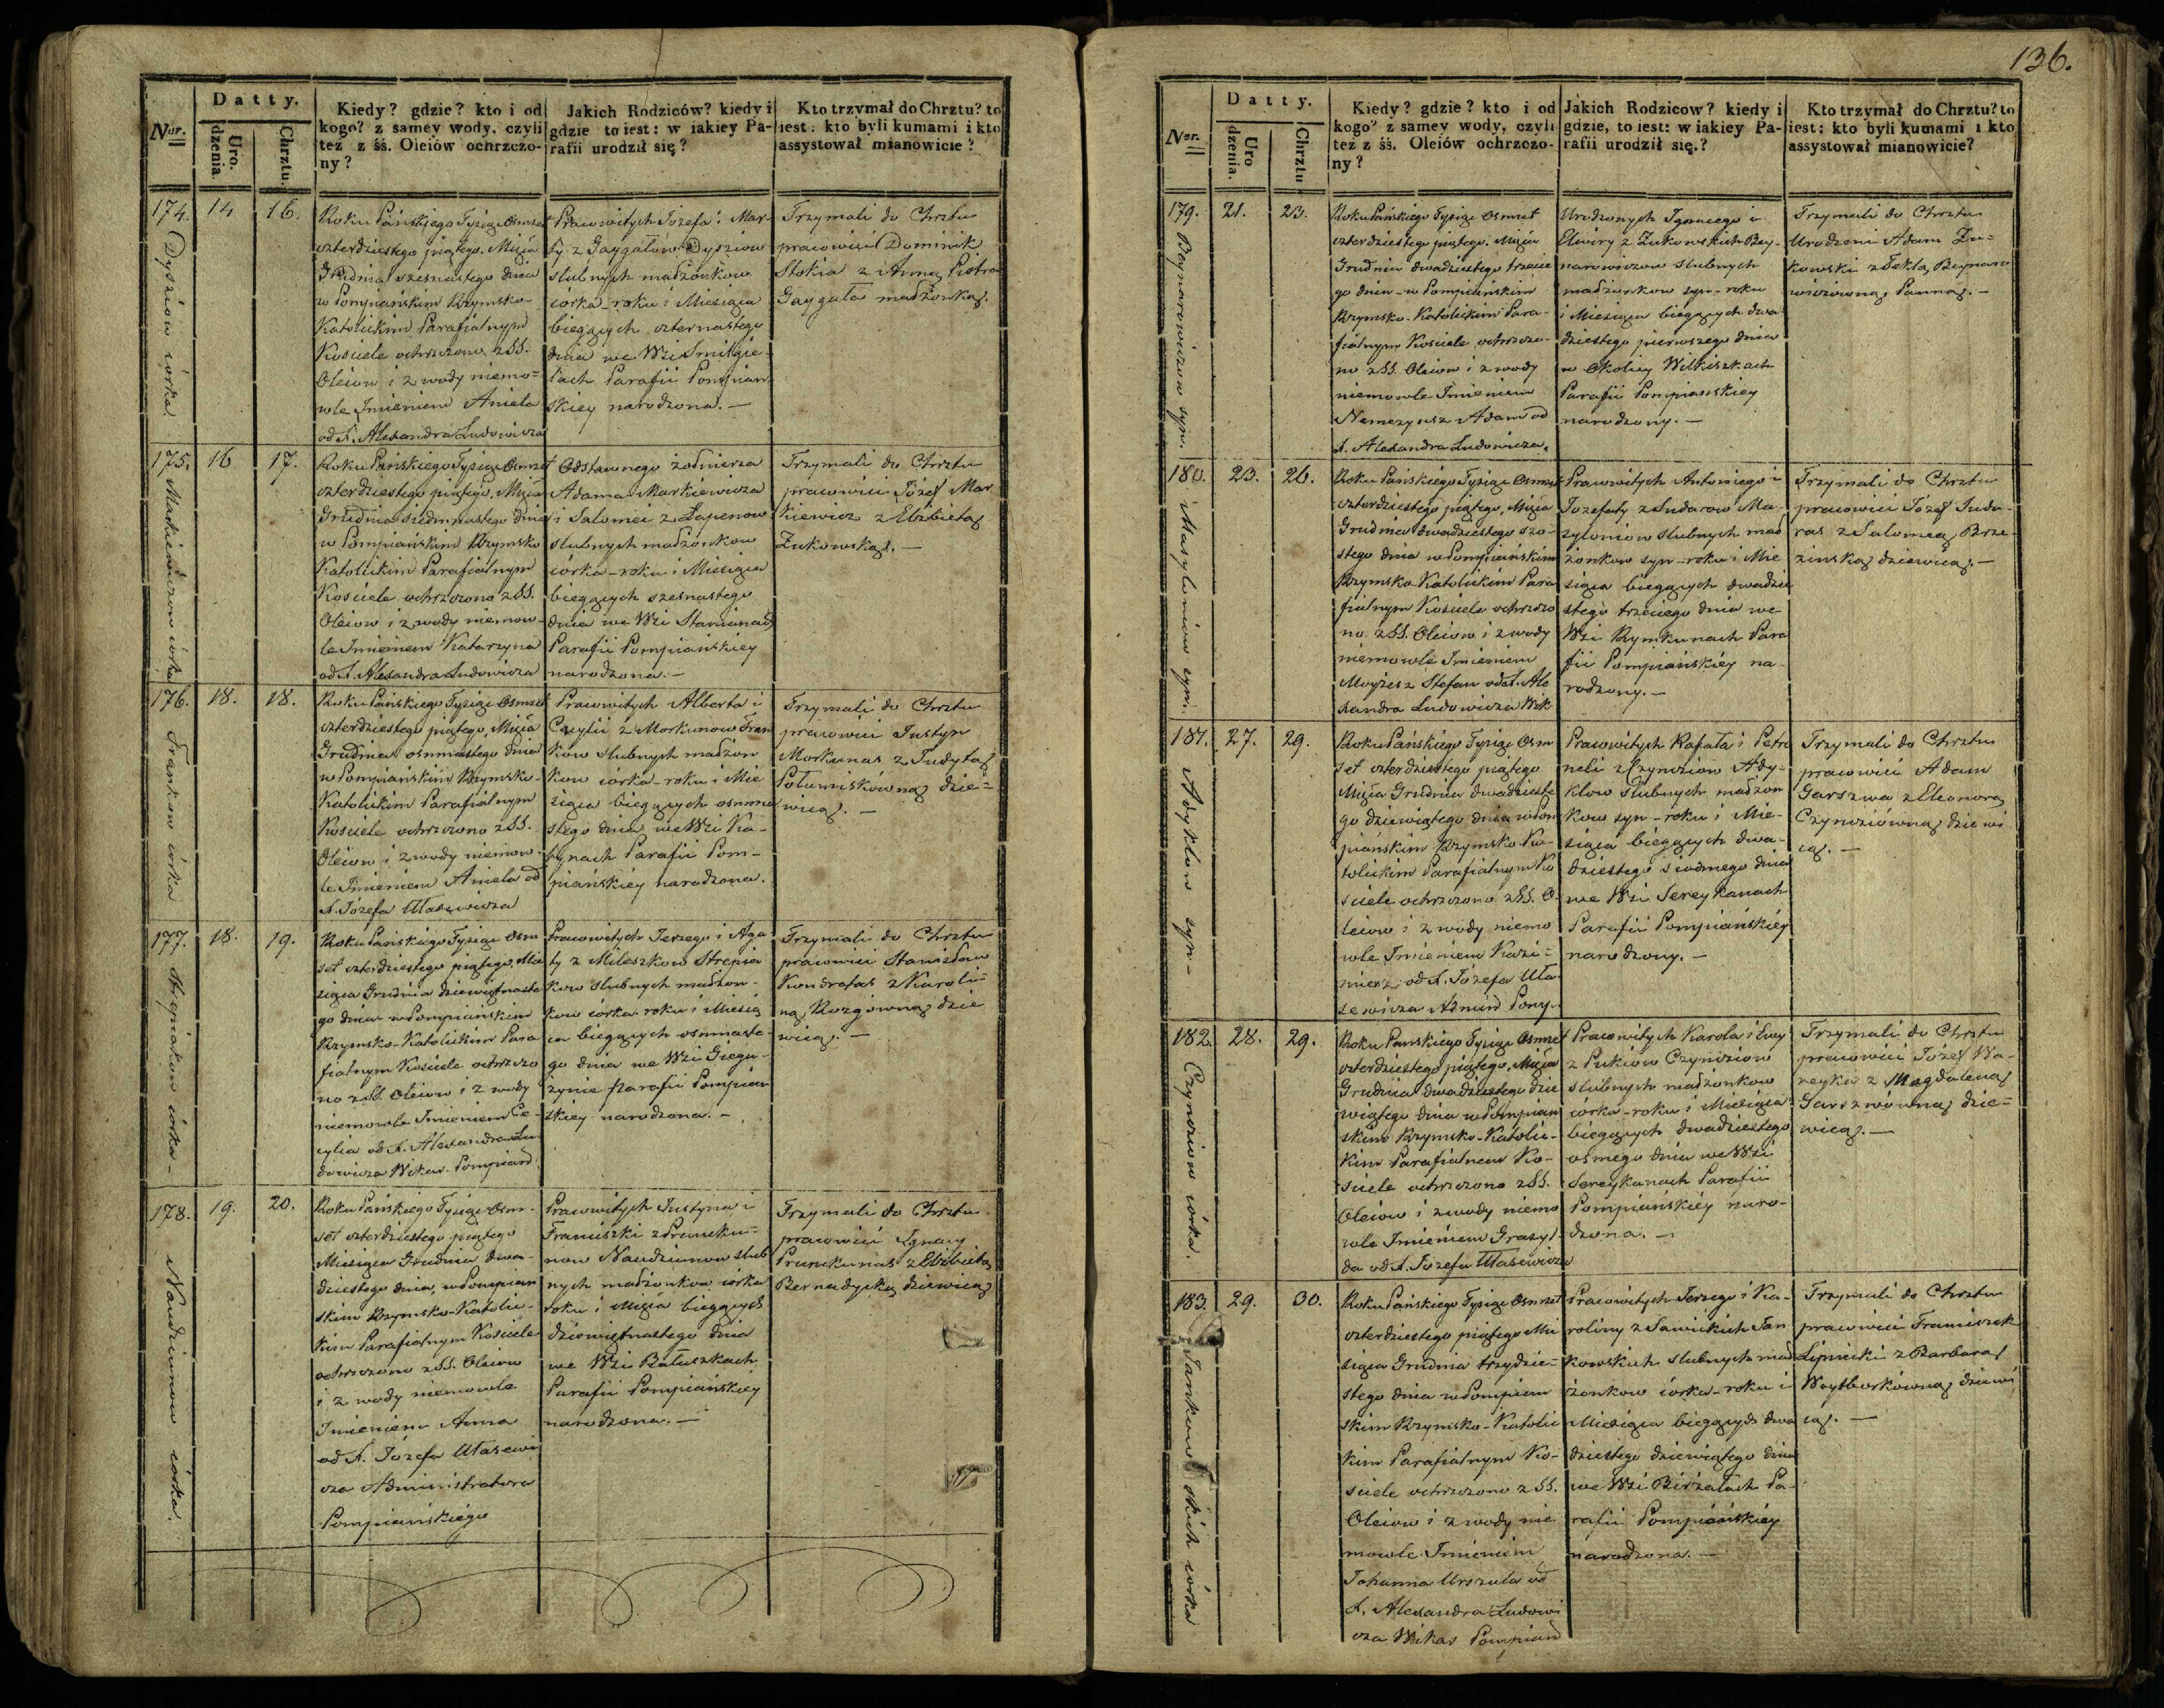 136.
Datty.
Nor.
Uro. dzenia.
Chrztu.
Kiedy? gdzie? kto i od
kogo? z samey wody, czyli
też z śś. Oleiów ochrzczo-
ny?
Jakich Rodziców? kiedy i
gdzie to iest: w iakiey Pa-
rafii urodził się?
Kto trzymał do Chrztu? to
iest: kto byli kumami i kto
assystował mianowicie?
174.
Dysziow córka
14
16.
Roku Pańskiego Tysiąc Osmset
czterdziestego piątego, Mięsia
Grudnia szesnastego dnia
w Pompiańskim Rzymsko-
Katolickim Parafialnym
Kościele ochrzczono z SS.
Oleiow i z wody niemo=
wle Imieniem Aniela
od X. Alexandra Ludowicza
Prawowitych Józefa i Mar-
ty z Gaygałów Dysziow
slubnych małżonkow
córka - roku i Miesiąca
biegących czternastego
dnia we Wsi Smilgie-
lach Parafii Pompian-
skiey narodzona. —
Trzymali do Chrztu
pracowici Dominik
Stokia z Anną Piotra
Gaygała małżonką.
175.
Markiewiczow córka
16
17.
Roku Pańskiego Tysiąc Osmset
czterdziestego piątego, Mięsia
Grudnia siedmnastego dnia
w Pompiańskim Rzymsko
Katolickim Parafialnym
Kościele ochrzczono z SS.
Oleiow i z wody niemow-
le Imieniem Katarzyna
od X. Alexandra Ludowicza
Odstawnego żołnierza
Adama Markiewicza
i Salomei z Łapenow
slubnych małżonkow
córka - roku i Miesiąca
biegących szesnastego
dnia we Wsi Staniunach
Parafii Pompiańskiey
narodzona. —
Trzymali do Chrztu
pracowici Józef Mar
kiewicz z Elżbietą
Żukowską. —
176.
Frankow córka
18.
18.
Roku Pańskiego Tysiąc Osmset
czterdziestego piątego, Mięsia
Grudnia osmnastego dnia
w Pompiańskim Rzymsko-
Katolickim Parafialnym
Kościele ochrzczono z SS.
Oleiow i z wody niemow-
le Imieniem Aniela od
X. Józefa Ułasewicza
Pracowitych Alberta i
Cecylii z Morkunow Fran
kow slubnych małżon
kow córka - roku i Mie
siąca biegących osmna
stego dnia we Wsi Ka-
tynach Parafii Pom-
piańskiey narodzona.
Trzymali do Chrztu
pracowici Justyn
Morkunas z Judytą
Potumiskówną dzie=
wicą. —
177.
Strepiakow córka -
18.
19.
Roku Pańskiego Tysiąc Osm
set czterdziestego piątego, Mie
siąca Grudnia dziewiętnaste
go dnia w Pompianskim
Rzymsko-Katolickim Para
fialnym Kościele ochrzczo
no z SS. Oleiow i z wody
niemowle Imieniem Ce-
cylia od X. Alexandra Lu
dowicza Wikar. Pompiand.
Pracowitych Jerzego i Aga
ty z Mileszkow Strepia
kow slubnych małżon-
kow córka roku i Miesią
ca biegących osmnaste-
go dnia we Wsi Giegu-
żynie Parafii Pompian
skiey narodzona. —
Trzymali do Chrztu
pracowici Stanisław
Kondratas z Karoli=
ną Rozgówną dzie
wicą. —
178.
Naudziunow córka.
19.
20.
Roku Pańskiego Tysiąc Osm-
set czterdziestego piątego
Miesiąca Grudnia dwa-
dziestego dnia, w Pompian
skim Rzymsko-Katolic-
kim Parafialnym Kościele
ochrzczono z SS. Oleiow
i z wody niemowle
Imieniem Anna
od X. Józefa Ułasewi
cza Administratora
Pompiańskiego
Prawowitych Justyna i
Franciszki z Pruncku=
now Naudziunow slub
nych małżonkow córka
roku i Mięsia biegących
dziewiętnastego dnia
we Wsi Bałuszkach
Parafii Pompiańskiey
narodzona. —
Trzymali do Chrztu
pracowici Ignacy
Prunckunas z Elżbietą
Bernadycką dziewicą
Datty.
Nor.
Uro dzenia.
Chrztu
Kiedy? gdzie? kto i od
kogo? z samey wody, czyli
też z śś. Oleiów ochrzczo-
ny?
Jakich Rodzicow? kiedy i
gdzie, to iest: w iakiey Pa-
rafii urodził się.?
Kto trzymał do Chrztu? to
iest: kto byli kumami i kto
assystował mianowicie?
179.
Beynarowiczow syn.
21.
23.
Roku Pańskiego Tysiąc Osmset
czterdziestego piątego, Mięsia
Grudnia dwadziestego trzecie
go dnia - w Pompiańskim
Rzymsko-Katolickim Para-
fialnym Kościele ochrzczo-
no z SS. Oleiow i z wody
niemowle Imieniem
Nemezyusz Adam od
X. Alexandra Ludowicza.
Urodzonych Ignacego i
Elwiry z Żukowskich Bey-
narowiczow slubnych
małżonkow syn - roku
i Miesiąca biegących dwa-
dziestego pierwszego dnia
w Okolicy Wilkiszkach
Parafii Pompianskiey
narodzony. —
Trzymali do Chrztu
Urodzeni Adam Żu=
kowski z Teklą Beynaro
wiczówną Panną. —
180.
Maszloniow syn.
23.
26.
Roku Pańskiego Tysiąc Osmset
czterdziestego piątego, Mięsia
Grudnia dwadziestego szo-
stego dnia w Pompiańskim
Rzymsko-Katolickim Para
fialnym Kościele ochrzczo
no z SS. Oleiow i z wody
niemowle Imieniem
Moyżesz Stefan od X. Ale
xandra Ludowicza Wik
Prawowitych Antoniego i
Jozefaty z Sudarow Ma-
szloniow slubnych mał
żonkow syn - roku i Mie
siąca biegących dwadzie
stego trzeciego dnia we
Wsi Rymkunach Para
fii Pompiańskiey na-
rodzony. —
Trzymali do Chrztu
pracowici Józef Suda-
ras z Salomeą Brze-
zinską dziewicą. —
181.
Adyklow syn -
27.
29.
Roku Pańskiego Tysiąc Osm
set czterdziestego piątego
Mięsia Grudnia dwadzieste
go dziewiątego dnia w Pom
piańskim Rzymsko Ka-
tolickim Parafialnym Ko
ściele ochrzczono z SS. O-
leiow i z wody niemo
wle Imieniem Kazi=
mierz od X. Józefa Uła
sewicza Admind Pomp.
Prawowitych Rafała i Petro
neli z Czyndziow Ady-
klow slubnych małżon
kow syn - roku i Mie-
siąca biegących dwa-
dziestego siodmego dnia
we Wsi Sereykanach
Parafii Pompiańskiéy
narodzony. —
Trzymali do Chrztu
pracowici Adam
Garszwa z Eleonorą
Czyndziówną dziewi
cą. —
182.
Czyndziow córka.
28.
29.
Roku Pańskiego Tysiąc Osmset
czterdziestego piątego, Mięsia
Grudnia dwadziestego dzie
wiątego dnia w Pompian
skim Rzymsko-Katolic-
kim Parafialnem Ko-
sciele ochrzczono z SS.
Oleiow i z wody niemo
wle Imieniem Grazyl-
da od X. Jozefa Ułasewicza
Prawowitych Karola i Ewy
z Pukiow Czyndziow
slubnych małżonkow
córka - roku i Miesiąca
biegących dwadziestego
osmego dnia we Wsi
Sereykanach Parafii
Pompiańskiéy naro-
dzona. —
Trzymali do Chrztu
pracowici Józef Wa-
reyka z Magdaleną
Garszwówną dzie=
wicą. —
183.
Jankowskich córka
29.
30.
Roku Pańskiego Tysiąc Osmset
czterdziestego piątego Mie
siąca Grudnia trzydzie=
stego dnia w Pompian
skim Rzymsko-Katolic
kim Parafialnym Ko-
sciele ochrzczono z SS.
Oleiow i z wody nie
mowle Imieniem
Johanna Urszula od
X. Alexandra Ludowi
cza Wikar Pompiand
Pracowitych Jerzego i Ka-
roliny z Sawickich Jan
kowskich slubnych mał
żonkow córka - roku i
Miesiąca biegących dwa
dziestego dziewiątego dnia
we Wsi Birżałach Pa-
rafii Pompiańskiéy
narodzona. —
Trzymali do Chrztu
pracowici Franciszek
Lipnicki z Barbarą
Woytkorkówną dziewi
cą. —